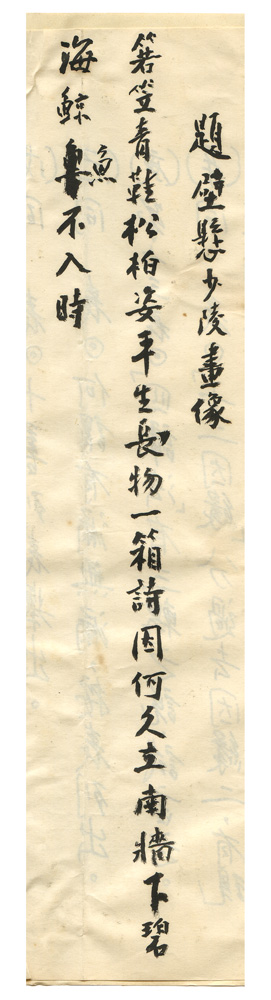 題壁懸少陵畫像
箬笠青鞋松柏姿平生長物一箱詩因何久立南牆下碧
海鯨魚不入時